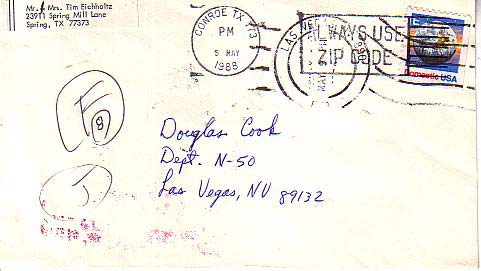 Mr. & Mrs. Tim Eichholtz
23911 Spring Mill Lane
Spring, TX 77373
CONROE TX 773
PM
5 MAY
1988
LAS
ALWAYS USE
ZIP CODE
Domestic USA
F
8
J
Douglas Cook
Dept. N-50
Las Vegas, NV 89132